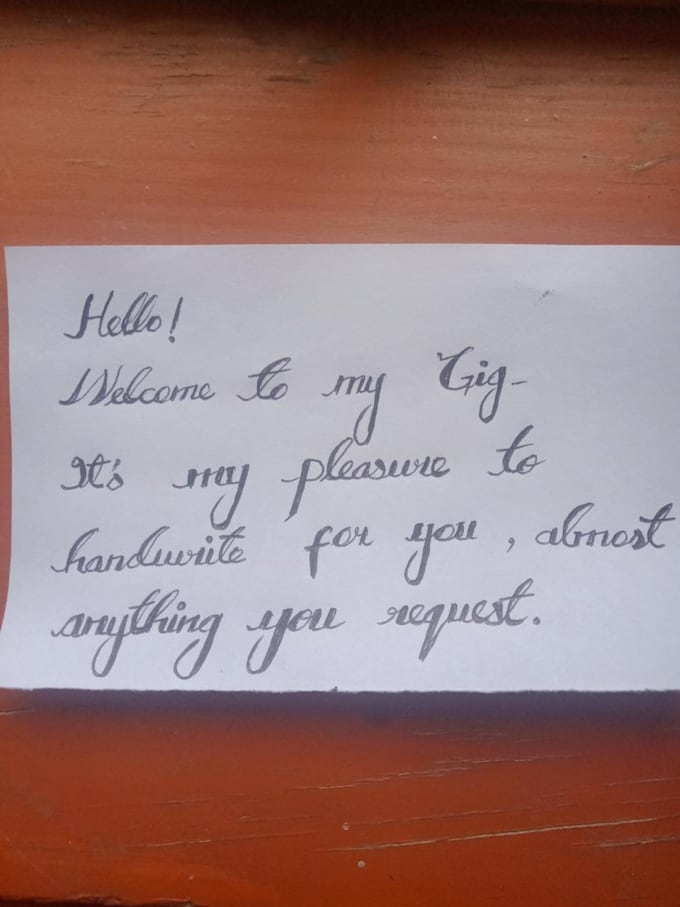 Hello!
Welcome to my Gig-
It's my pleasure to
handwrite for you, almost
anything you request.